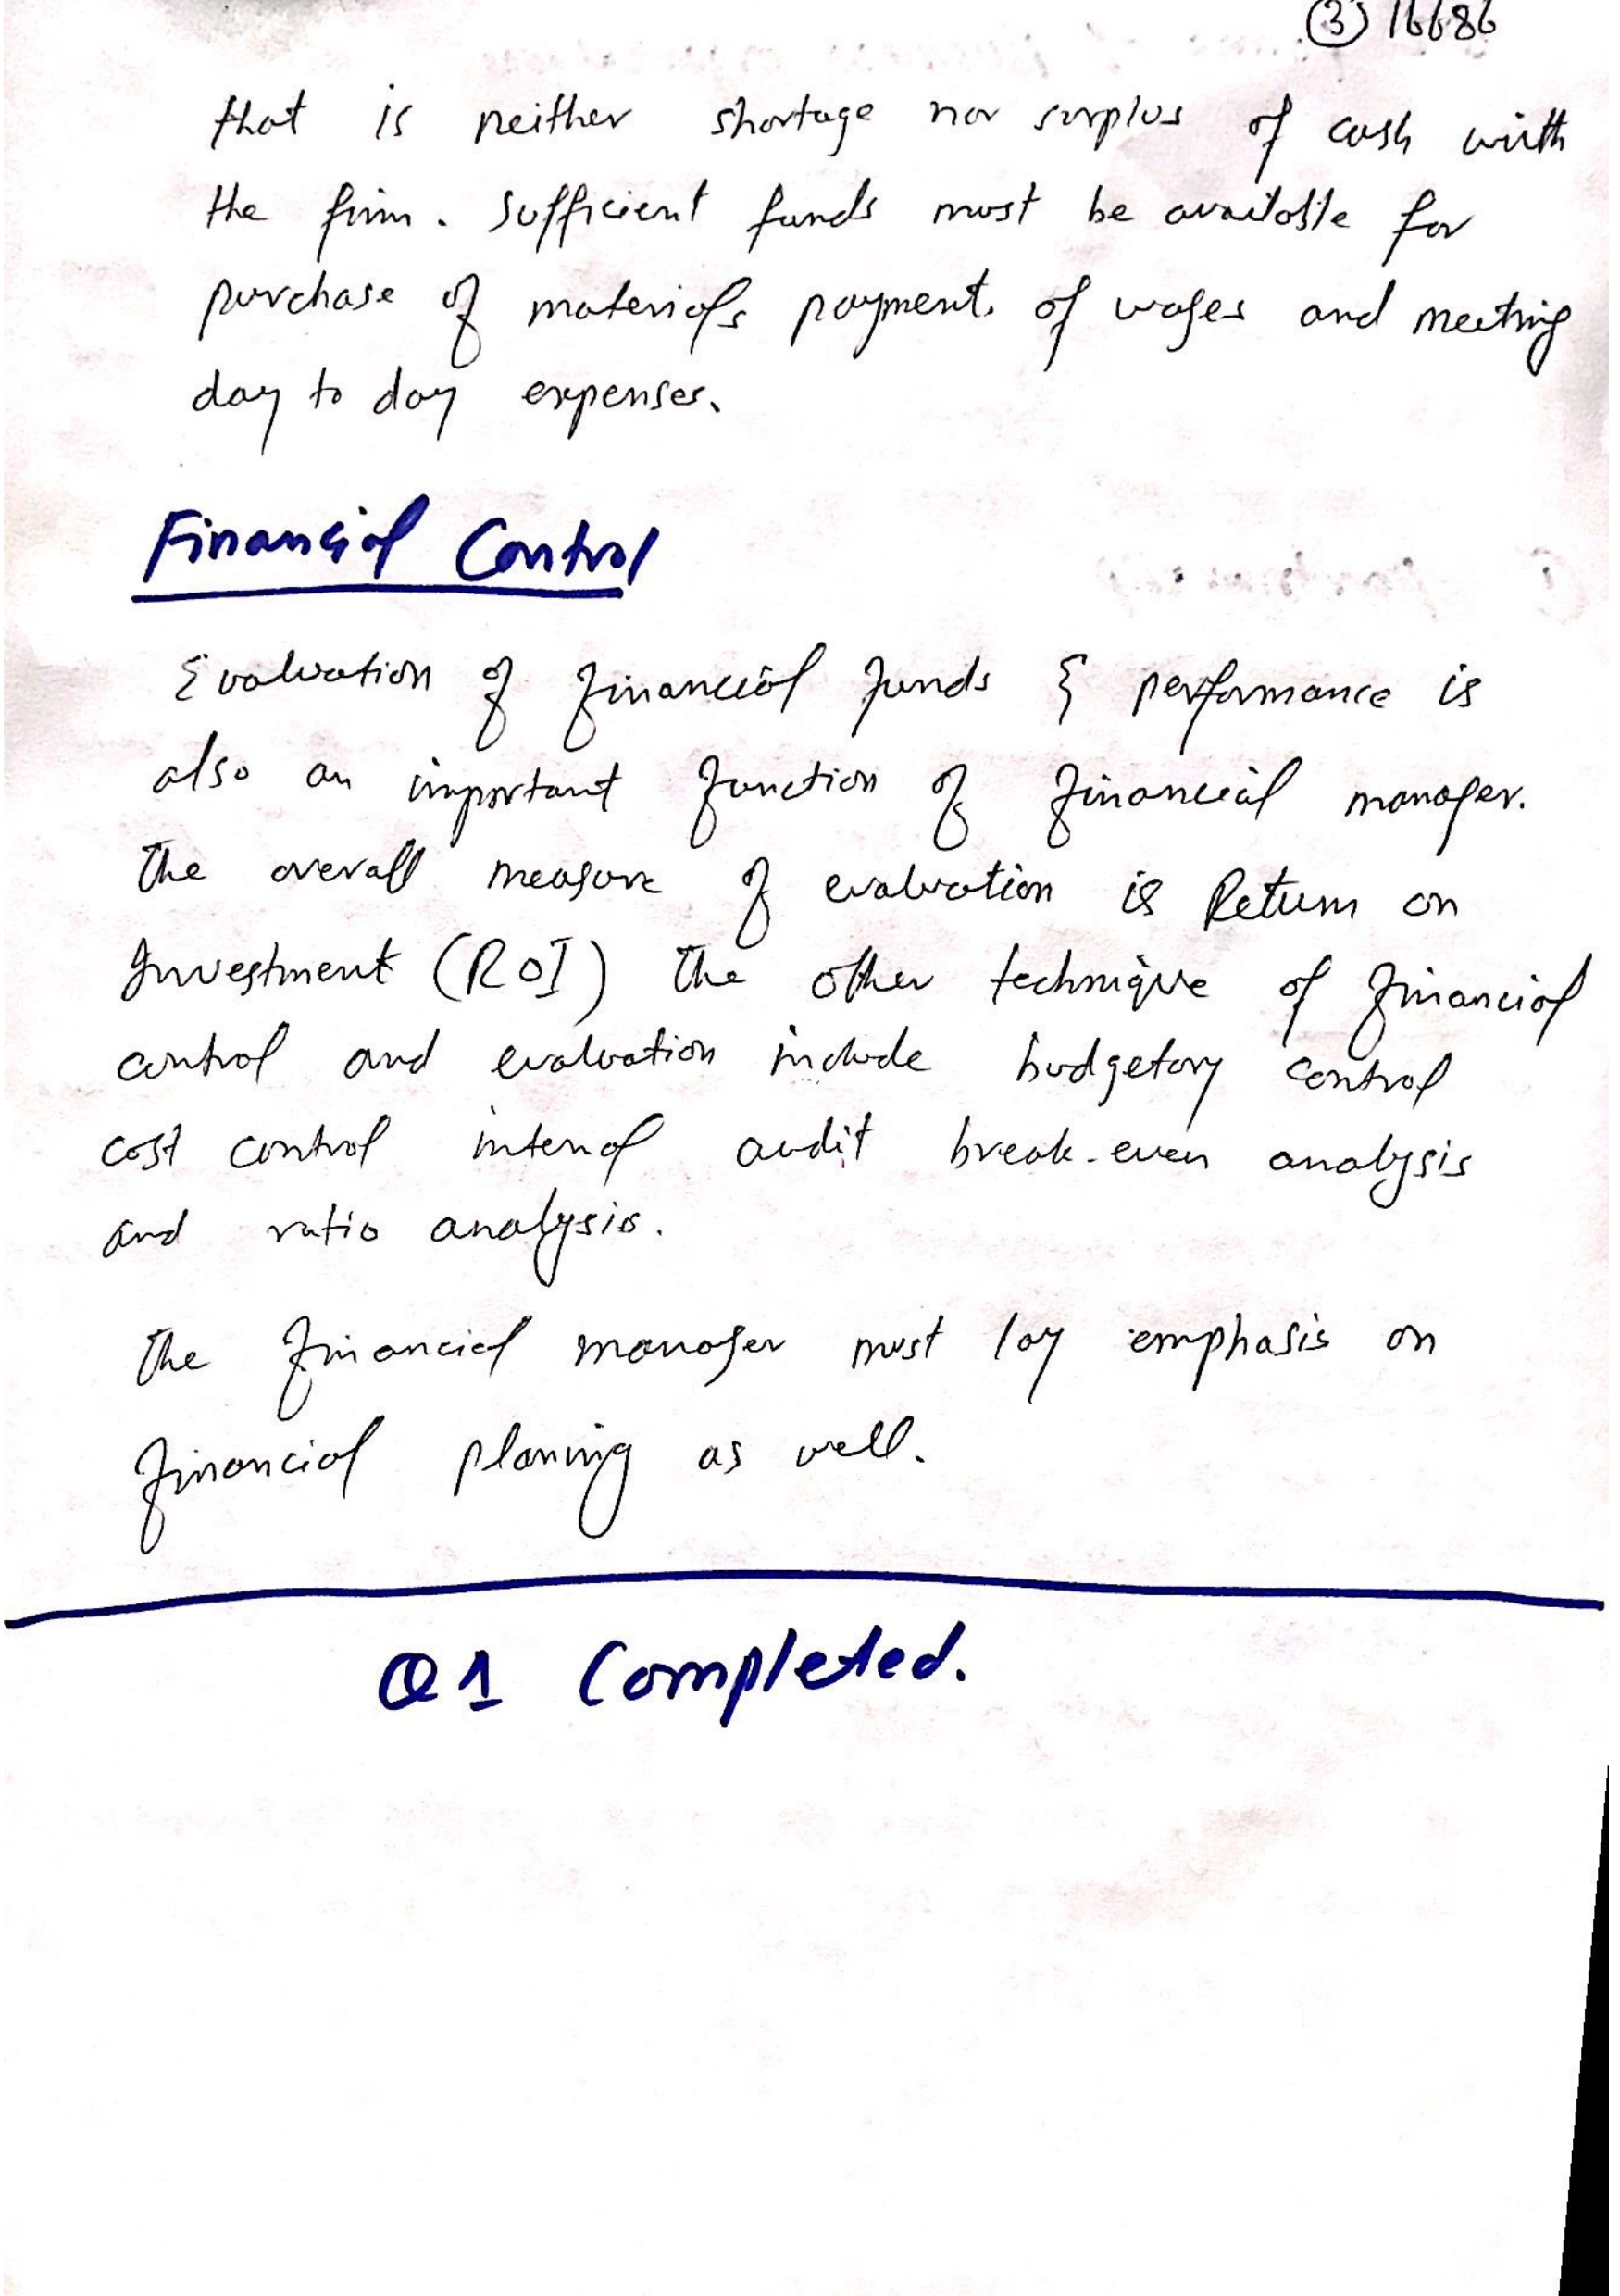 ③ 16686
that is neither shortage nor surplus of cash with
the firm. Sufficient funds must be available for
purchase of materials payment. of wages and meeting
day to day expenses.
Financial Control
Evaluation of financial funds & performance is
also an important function of financial manager.
The overall measure of evaluation is Return on
Investment (ROI) The other technique of financial
control and evaluation include budgetary control
cost control internal audit break-even analysis
and ratio analysis.
The financial manager must lay emphasis on
financial planing as well.
Q1 Completed.